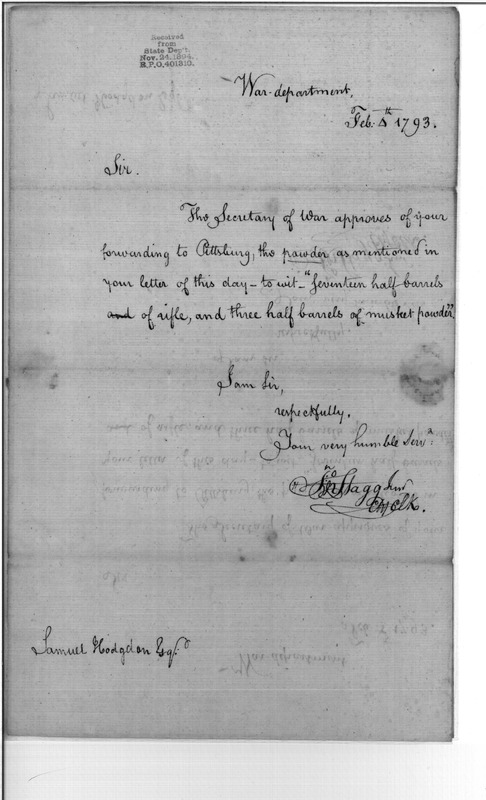 Received
from
State Dep't.
Nov. 24. 1894.
R.P.O. 401310.
War department,
Feb. 4th 1793.
Sir.
The Secretary of War approves of your
forwarding to Pittsburg, the powder as mentioned in
your letter of this day – to wit – "Seventeen half barrels
and of rifle, and three half barrels of musket powder".
I am Sir,
respectfully.
Your very humble Servt
Jno Stagg Junr
Ch Clk.
Samuel Hodgdon Esqr.